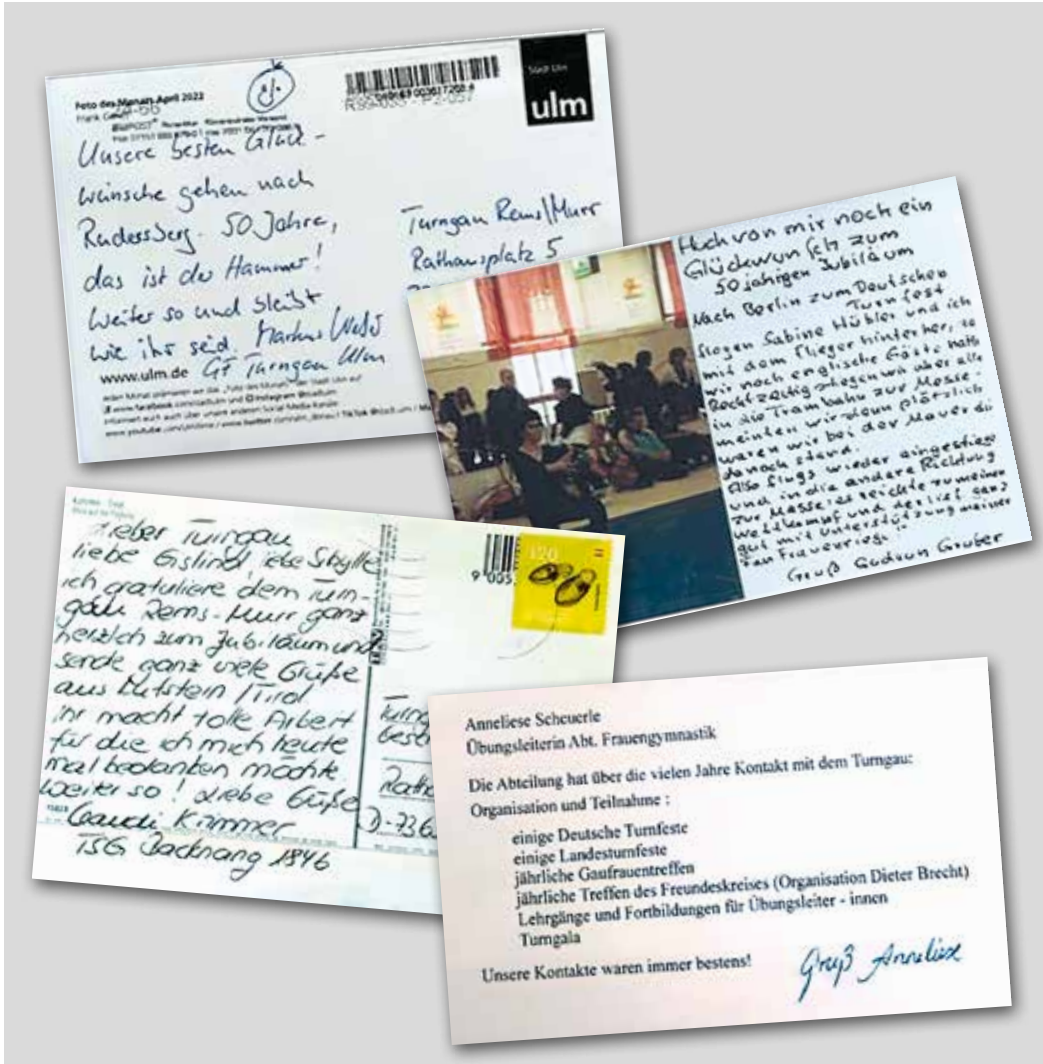 Foto des Monats April 2022
Frank
Stadt Ulm
ulm
Unsere besten Glück-
wünsche gehen nach
Rudersberg. 50 Jahre,
das ist der Hammer!
Weiter so und bleibt
wie ihr seid. Markus
GF Turngau Ulm
www.ulm.de
Turngau Rems/Murr
Rathausplatz 5
Auch von mir noch ein
Glückwunsch zum
50 jährigen Jubiläum
Nach Berlin zum Deutschen
Turnfest
flogen Sabine Hübler und ich
mit dem Flieger hinterher, da
wir noch englische Gäste hatt
Rechtzeitig stiegen wir aber alle
in die Trambahn zur Messe-
meinten wir denn plötzlich
waren wir bei der Mauer di
danoch stand.
Also flugs wieder eingestiege
und in die andere Richtung
zur Messe. Es reichte zu meinem
Wettkampf und der lief ganz
gut mit Unterstützung meiner
Frauenriege!
Gruß Gudrun Gruber
Lieber Turngau
liebe Gislind, liebe Sibylle
ich gratuliere dem Turn-
gau Rems-Murr ganz
herzlich zum Jubiläum und
sende ganz viele Grüße
aus Kufstein / Tirol
ihr macht tolle Arbeit
für die ich mich heute
mal bedanken möchte.
Weiter so! Liebe Grüße
TSG Backnang 1846
120
9 005
Turng
Rath
D-736
Anneliese Scheuerle
Übungsleiterin Abt. Frauengymnastik
Die Abteilung hat über die vielen Jahre Kontakt mit dem Turngau:
Organisation und Teilnahme :
einige Deutsche Turnfeste
einige Landesturnfeste
jährliche Gaufrauentreffen
jährliche Treffen des Freundeskreises (Organisation Dieter Brecht)
Lehrgänge und Fortbildungen für Übungsleiter - innen
Turngala
Unsere Kontakte waren immer bestens!
Gruß Anneliese